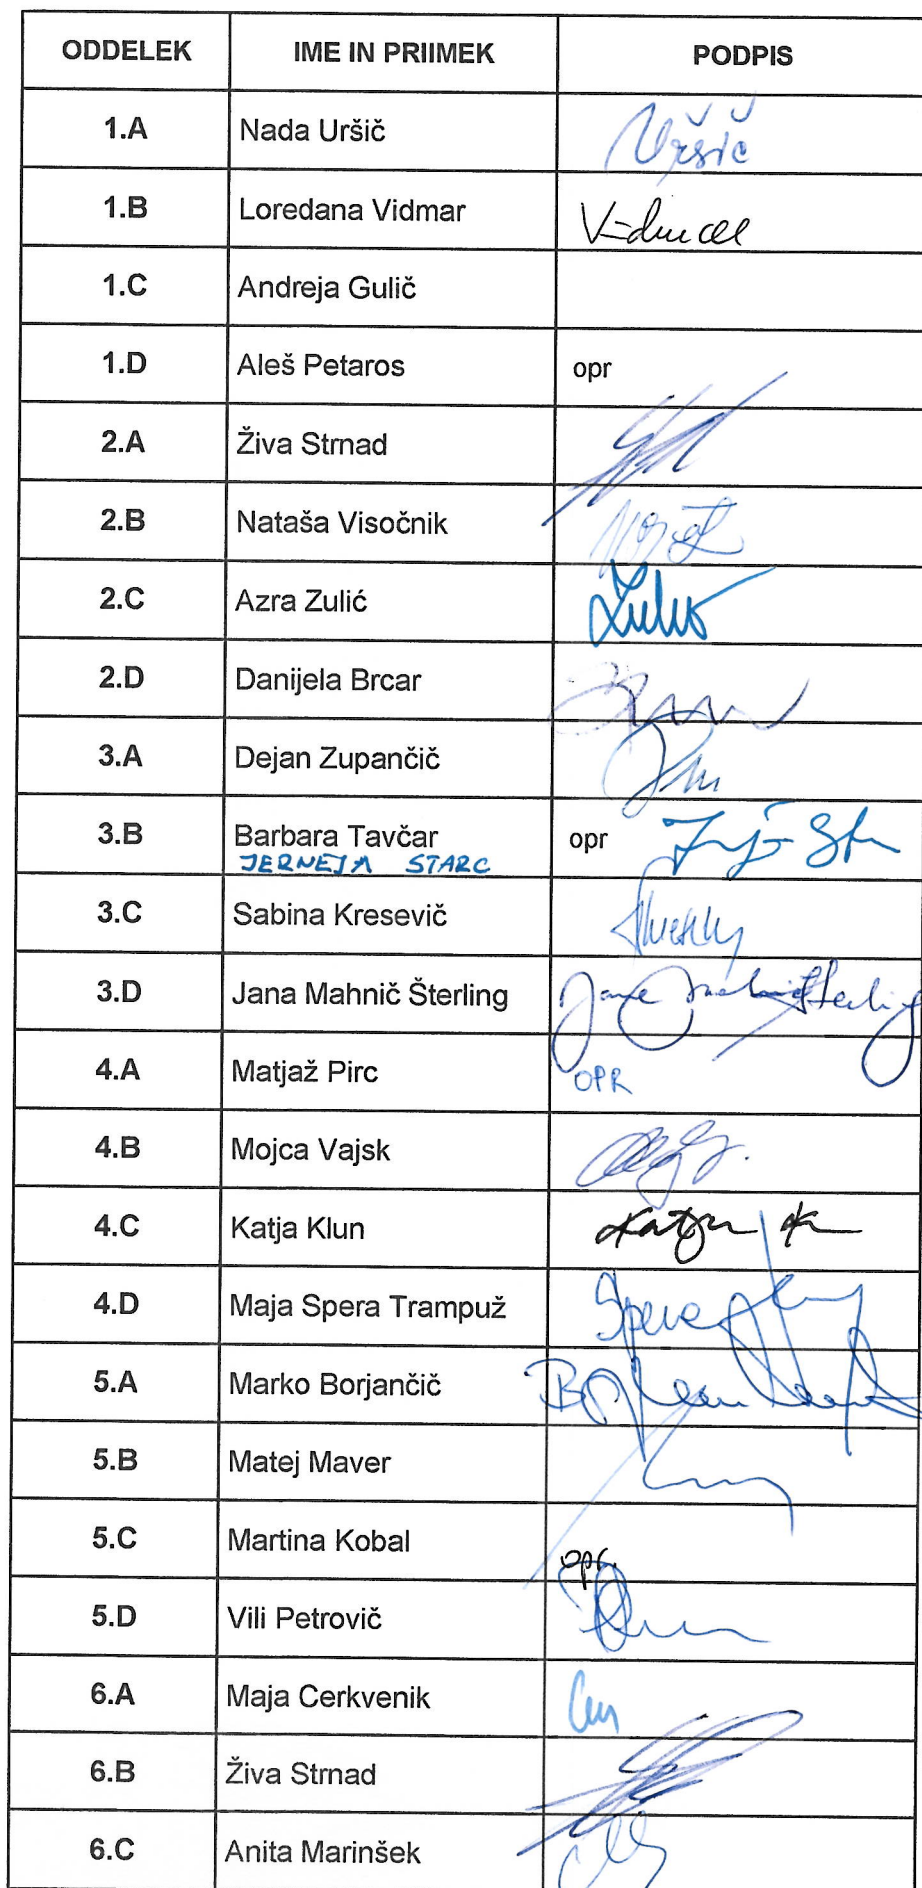 ODDELEK IME IN PRIIMEK PODPIS
1.A Nada Uršič Uršič
1.B Loredana Vidmar Vidmar
1.C Andreja Gulič
1.D Aleš Petaros opr
2.A Živa Strnad
2.B Nataša Visočnik
2.C Azra Zulić
2.D Danijela Brcar
3.A Dejan Zupančič
3.B Barbara Tavčar opr
JERNEJA STARC
3.C Sabina Kresevič
3.D Jana Mahnič Šterling
4.A Matjaž Pirc OPR
4.B Mojca Vajsk
4.C Katja Klun Katja
4.D Maja Spera Trampuž Spera
5.A Marko Borjančič
5.B Matej Maver
5.C Martina Kobal opr.
5.D Vili Petrovič
6.A Maja Cerkvenik
6.B Živa Strnad
6.C Anita Marinšek